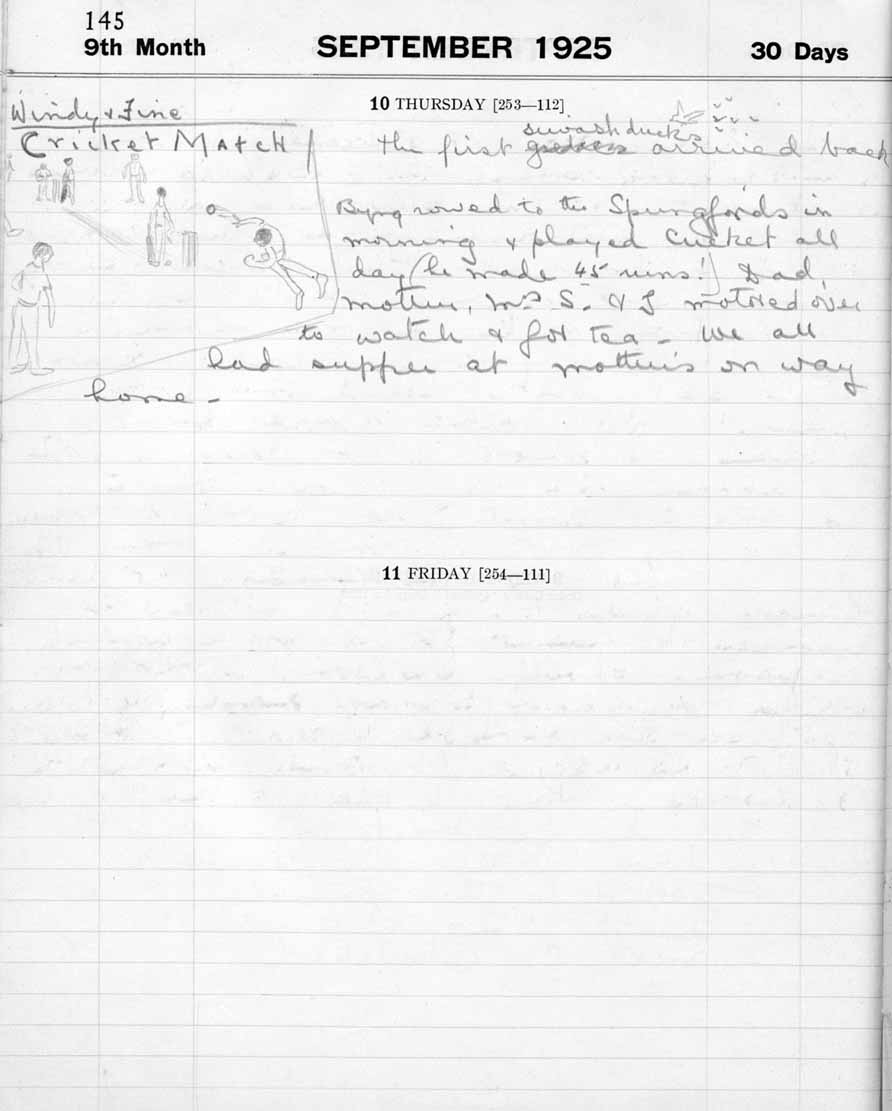 145
9th Month SEPTEMBER 1925 30 Days
10 THURSDAY [253—112]
Windy & Fine
Cricket Match
swash ducks
the first geese arrived back
Byng rowed to the Spungfords in
morning & played cricket all
day (he made 45 runs!) Dad,
mother, Mrs S. & I motored over
to watch & for tea - We all
had supper at mother's on way
home -
11 FRIDAY [254—111]